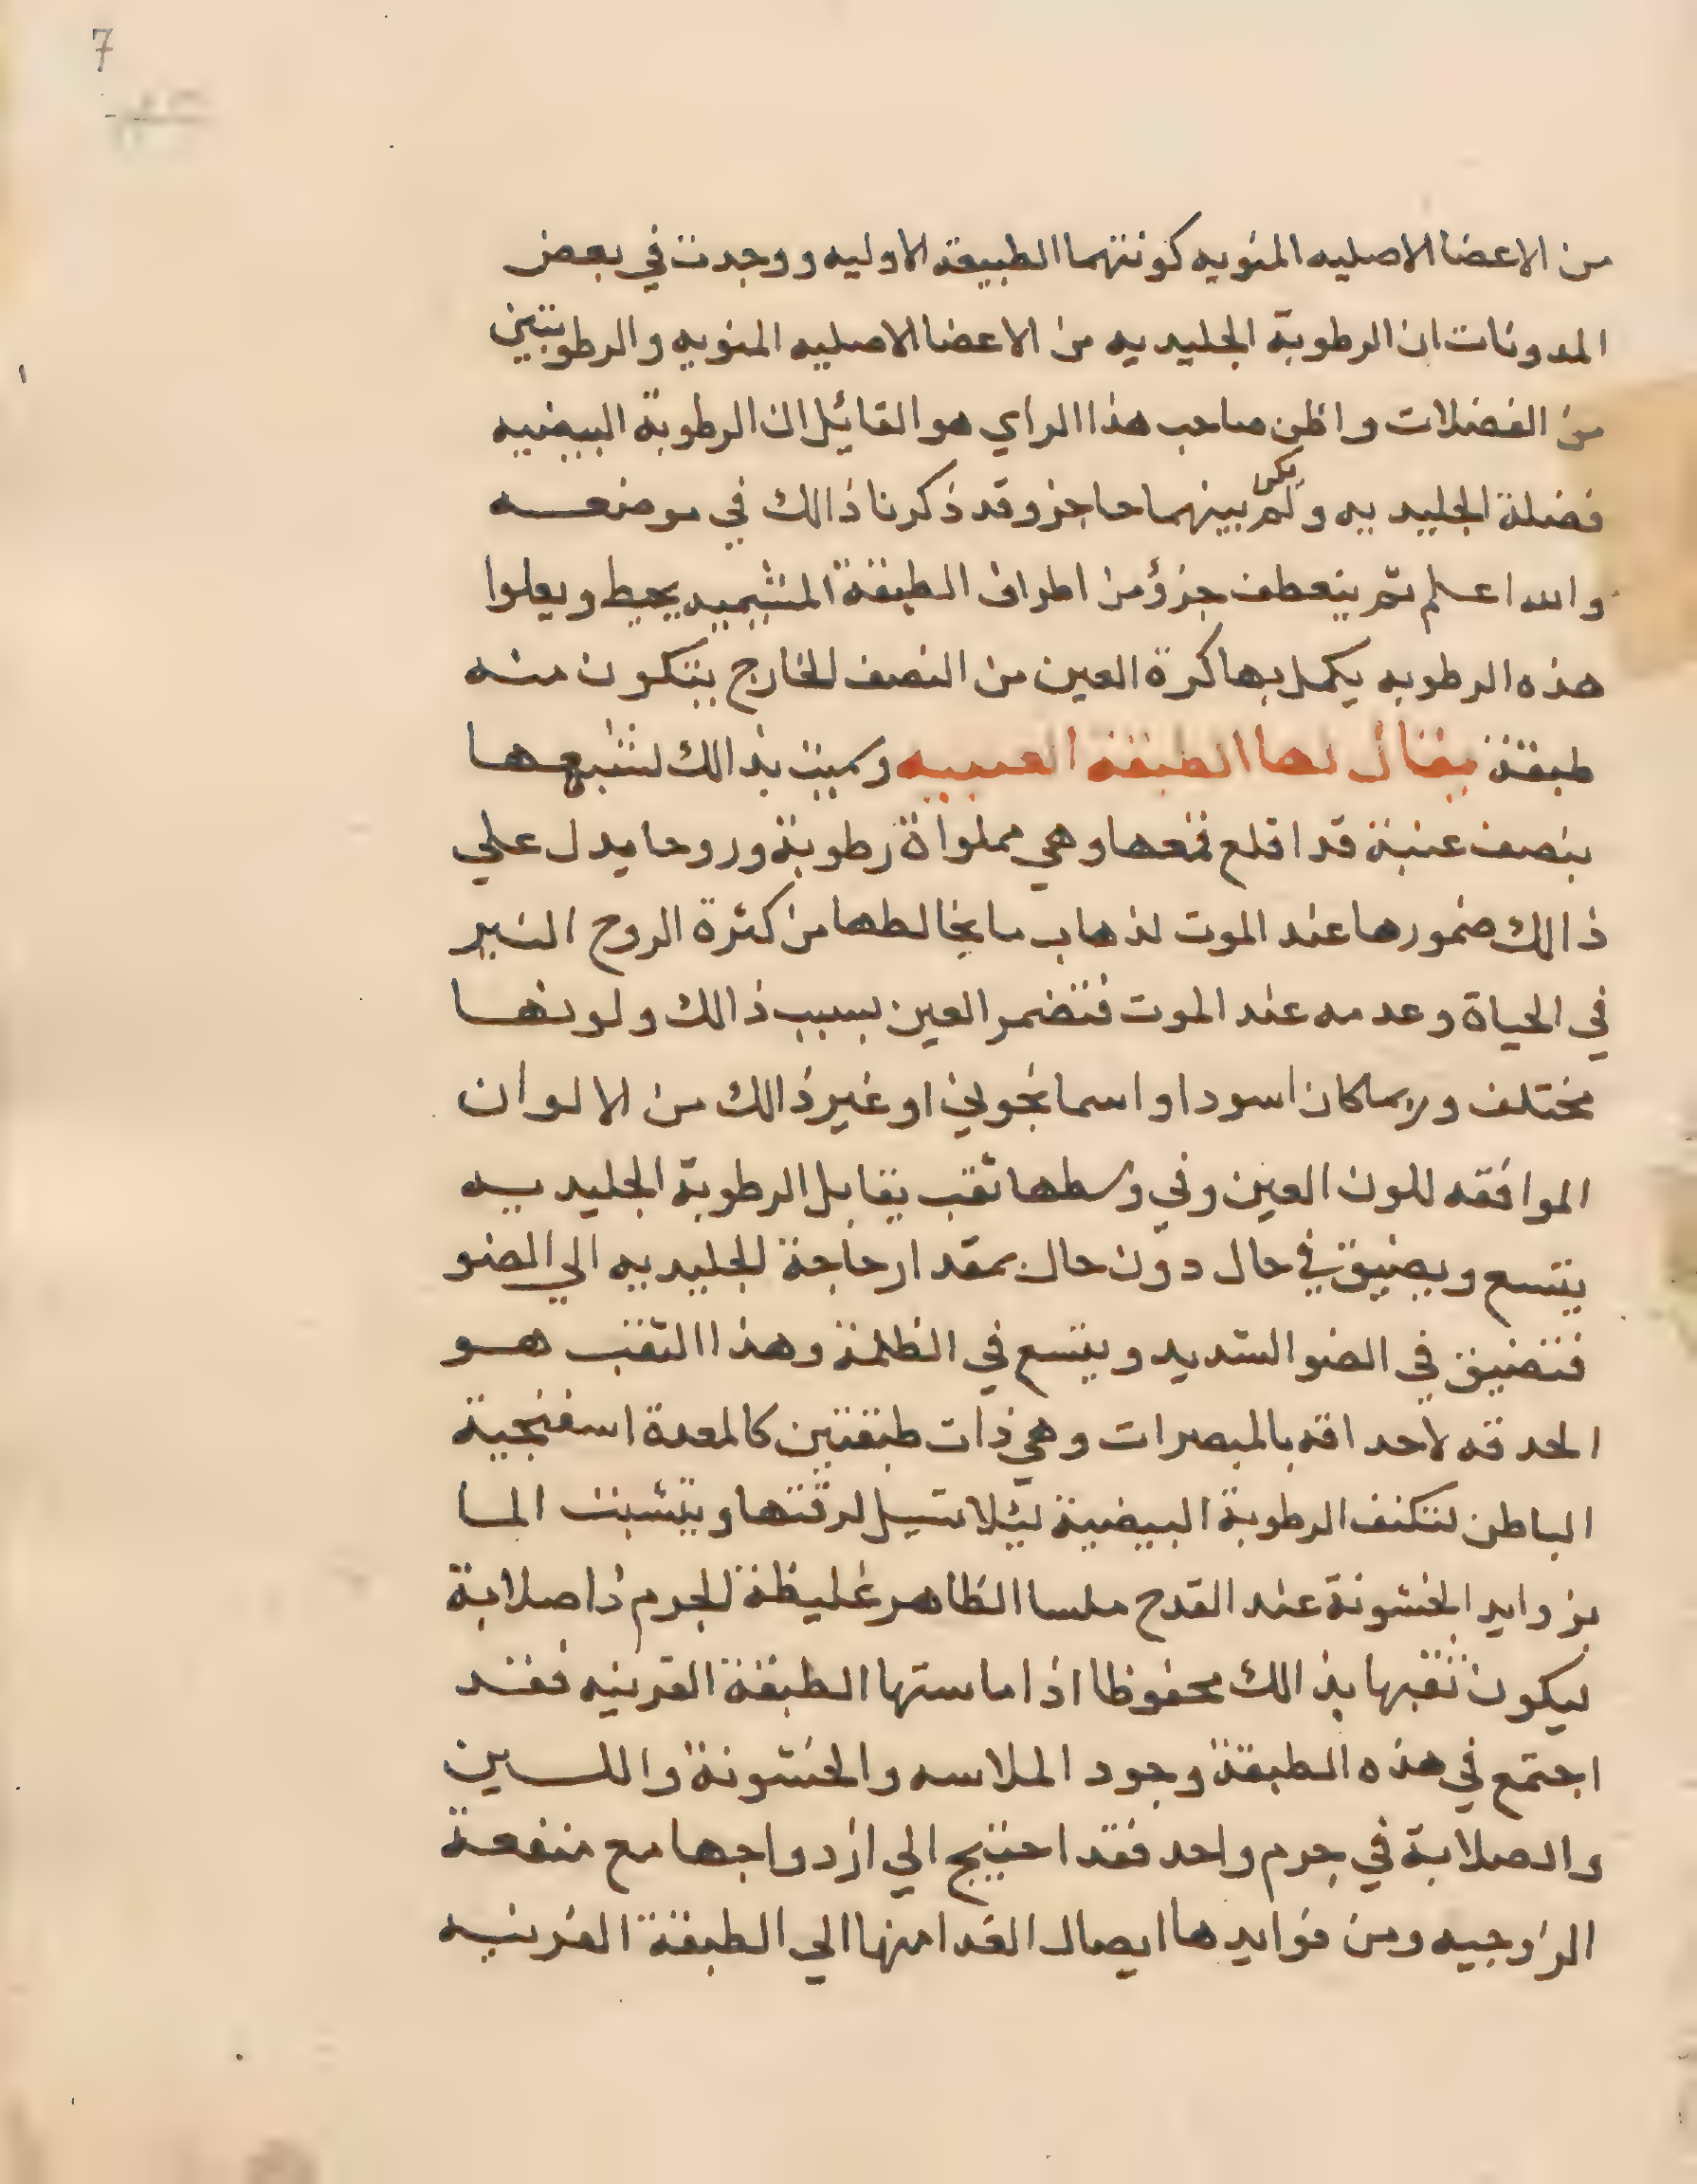 7
من الاعضا الاصليه المنويه كونتهما الطبيعة الاوليه ووجدت في بعض
المدونات ان الرطوبة الجليديه من الاعضا الاصليه المنويه والرطوبتين
من الفضلات واظن صاحب هذا الراي هو القايل ان الرطوبة البيضيه
فضلة الجليديه ولم يكن بينهما حاجز وقد ذكرنا ذالك في موضعه
والله اعلم ثم ينعطف جزؤ من اطراف الطبقة المشيميه يحيط ويعلوا
هذه الرطوبه يكمل بها كرة العين من النصف الخارج يتكون منه
طبقة يقال لها الطبقة العنبيه وسميت بذالك لشبهها
بنصف عنبة قد اقلع قمعها وهي مملواة رطوبة وروحا يدل علي
ذالك ضمورها عند الموت لذهاب ما يخالطها من كثرة الروح النير
في الحياة وعدمه عند الموت فتضمر العين بسبب ذالك ولونها
مختلف وربما كان اسودا او اسمانجوني او غير ذالك من الالوان
الموافقه للون العين وفي وسطها ثقب يقابل الرطوبة الجليديه
يتسع ويضيق في حال دون حال بمقدار حاجة الجليديه الي الضو
فتضيق في الضو الشديد ويتسع في الظلمة وهذا الثقب هو
الحدقه لاحداقه بالمبصرات وهي ذات طبقتين كالمعدة اسفنجية
الباطن لتكنف الرطوبة البيضية ليلا تسيل لرقتها ويتشبث الما
بزوايد الخشونة عند القدح ملسا الظاهر غليظة الجرم ذا صلابة
ليكون ثقبها بذالك محفوظا اذا ماستها الطبقة القرنيه فقد
اجتمع في هذه الطبقة وجود الملاسه والخشونة واللين
والصلابة في جرم واحد فقد احتيج الي ازدواجها مع منفعة
الزوجيه ومن فوايدها ايصال الغدا منها الي الطبقة القرنيه